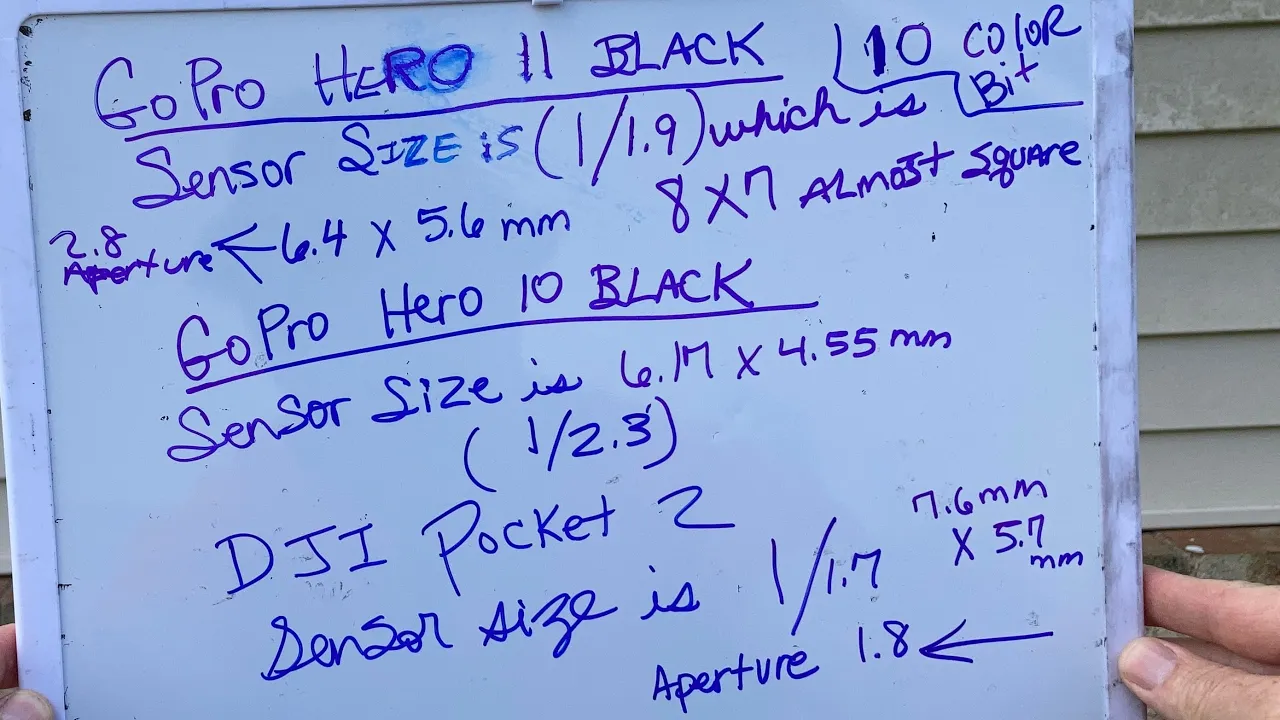 GoPro HERO 11 BLACK 10 COLOR Bit
Sensor SIZE is (1/1.9) which is
8 X 7 ALMOST SQUARE
2.8 Aperture ← 6.4 X 5.6 mm
GoPro Hero 10 BLACK
Sensor Size is 6.17 X 4.55 mm
(1/2.3)
DJI Pocket 2
Sensor size is 1/1.7
7.6mm
X 5.7
mm
Aperture 1.8 ←